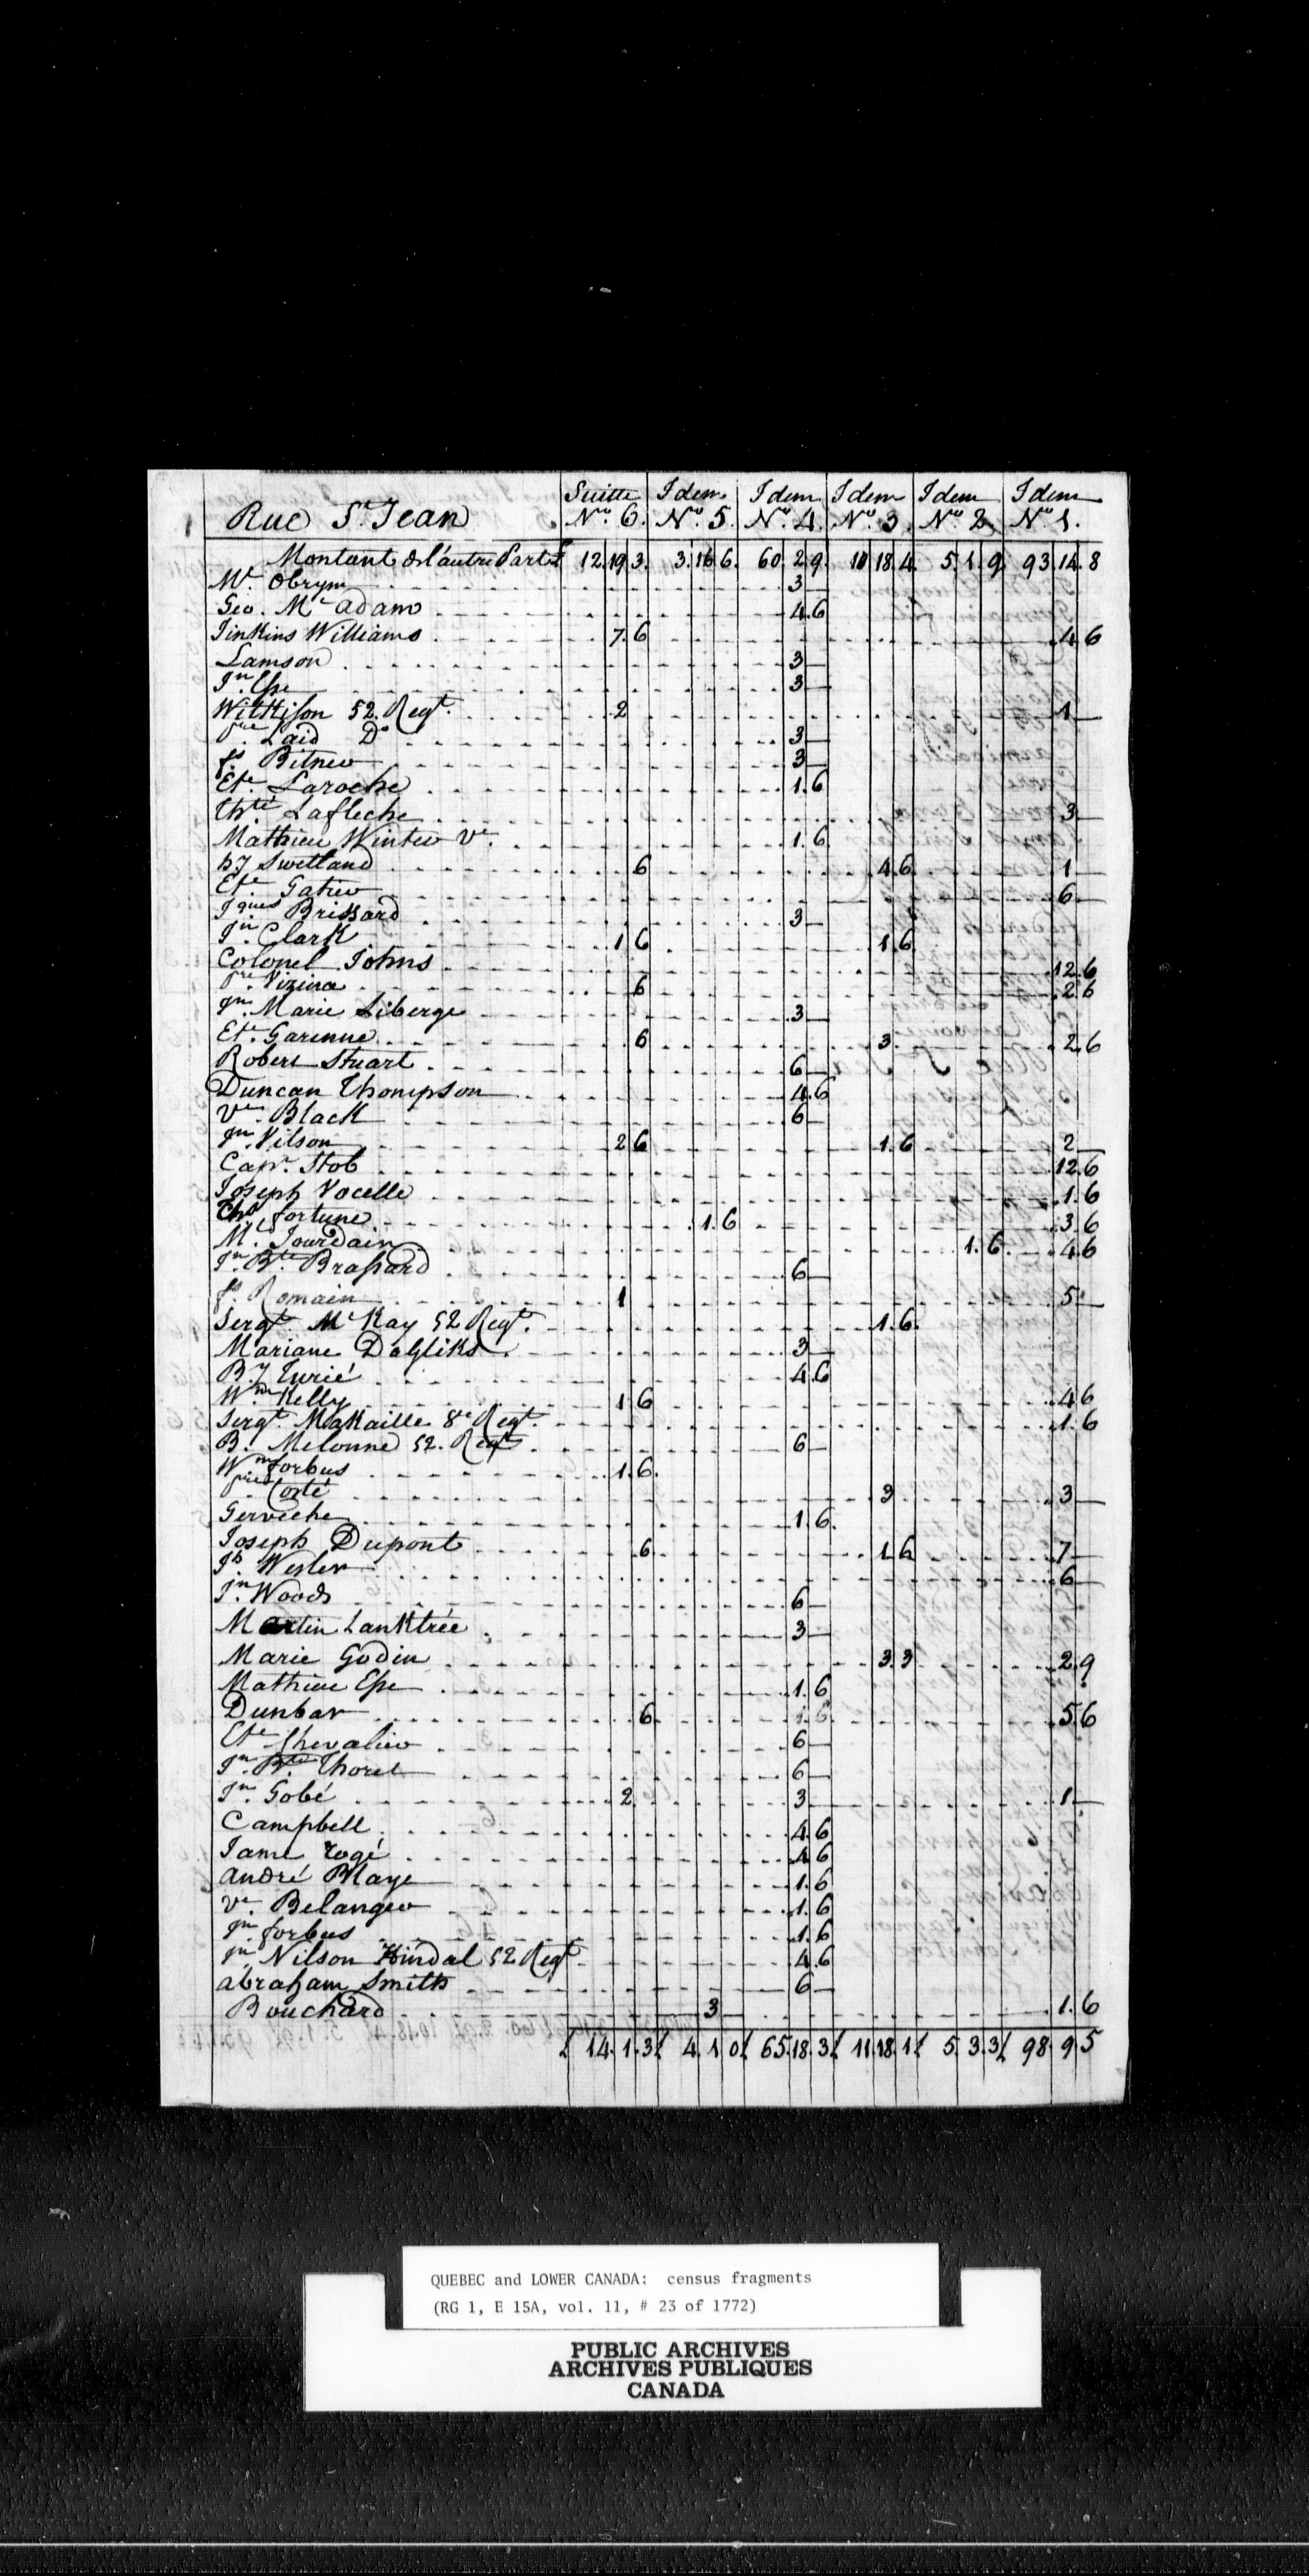 Suitte Idem Idem Idem Idem Idem
Rue St Jean No 6. No 5. No 4. No 3. No 2. No 1.
Montant de l'autre Part £ 12.19.3. 3.16.6. 60.2.9. 10.18.4. 5.1.9. 93.14.8
Mr. Obrym 3
Geo. Mc adam 4.6
Jinkins Williams 7.6 4 6
Lamson 3
Jn. Esse 3
Wilkison 52. Regt. 2 1
Pre. Laid Do 3
fs. Bitner 3
Ete. Laroche 1.6
Lafleche 3
Mathieu Winter Ve. 1.6
bj Swetland 6 4.6 1
Ete. Gatien 6
Jques Brissard 3
Jn. Clark 1 6 1.6
Colonel Johns 12.6
Pre. Vizina 6 2 6
Jn. Marie Liberge 3
Ete. Garenne 6 3 2 6
Robert Stuart 6
Duncan Thompson 4.6
Ve. Black 6
Jn. Nilson 2 6 1.6 2
Capn. Stob 12.6
Joseph Vocelle 1.6
Ths fortune 1.6 3 6
Mr. Jourdain 1.6 4 6
Jn. Bte. Brassard 6
fs. Romain 1 5
Sergt. Mc Kay 52 Regt. 1.6
Mariane Dagliks 3
Bj Turié 4.6
Wm. Kelly 1 6 4 6
Sergt. Makaille 8e Regt. 1.6
B. Melonne 52. Regt. 6
Wm. forbus 1.6
Pre. Corté 3 3
Gerveche 1.6
Joseph Dupont 6 1.6 7
Jh. Wesler 6
Jn. Woods 6
Martin Lanktrée 3
Marie Godin 3 3 2.9
Mathieu Esse 1.6
Dunbar 6 1.6 5.6
Ete Chevalier 6
Jn. Bte. Thoret 6
Jn. Gobé 2 3 1
Campbell 4.6
Jame rogé 4 6
andré Blaye 1.6
Ve. Belanger 1.6
Jn. forbus 1.6
Jn. Nilson Kindal 52 Regt 4.6
abraham Smith 6
Bouchard 3 1.6
£ 14.1.3 £ 4.1.0 £ 65.18.3 £ 11.18.1 £ 5.3.3 £ 98.9 5
QUEBEC and LOWER CANADA: census fragments
(RG 1, E 15A, vol. 11, # 23 of 1772)
PUBLIC ARCHIVES
ARCHIVES PUBLIQUES
CANADA